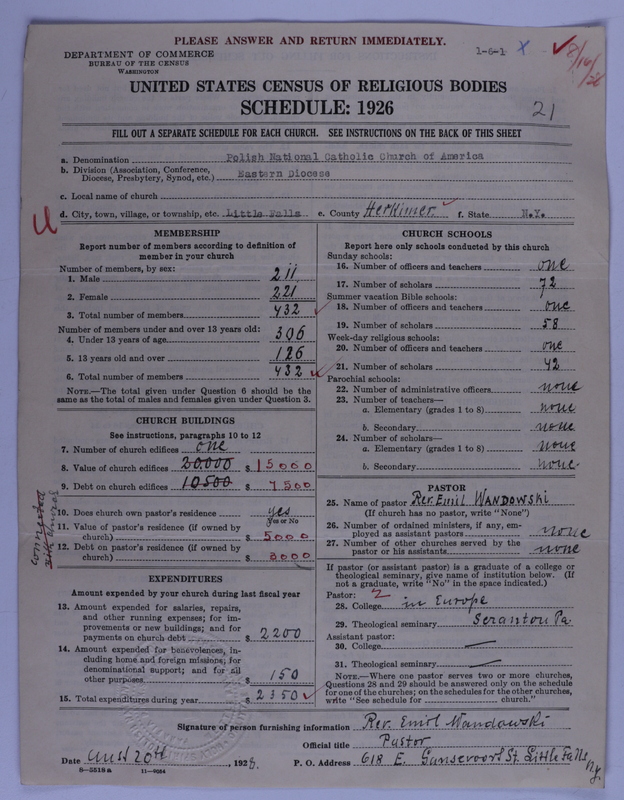 PLEASE ANSWER AND RETURN IMMEDIATELY.
1-6-1 X
8/16/28
DEPARTMENT OF COMMERCE
BUREAU OF THE CENSUS
WASHINGTON
UNITED STATES CENSUS OF RELIGIOUS BODIES
SCHEDULE: 1926
21
FILL OUT A SEPARATE SCHEDULE FOR EACH CHURCH. SEE INSTRUCTIONS ON THE BACK OF THIS SHEET
a. Denomination Polish National Catholic Church of America
b. Division (Association, Conference, Diocese, Presbytery, Synod, etc.) Eastern Diocese
c. Local name of church
d. City, town, village, or township, etc. Little Falls e. County Herkimer f. State N.Y.
MEMBERSHIP
Report number of members according to definition of
member in your church
Number of members, by sex:
1. Male 211
2. Female 221
3. Total number of members 432
Number of members under and over 13 years old:
4. Under 13 years of age 306
5. 13 years old and over 126
6. Total number of members 432
NOTE.—The total given under Question 6 should be the
same as the total of males and females given under Question 3.
CHURCH BUILDINGS
See instructions, paragraphs 10 to 12
7. Number of church edifices one
8. Value of church edifices 20,000 $ 15000
9. Debt on church edifices 10500 $ 7500
connected with church
10. Does church own pastor's residence yes
Yes or No
11. Value of pastor's residence (if owned by
church) $ 5000
12. Debt on pastor's residence (if owned by
church) $ 3000
EXPENDITURES
Amount expended by your church during last fiscal year
13. Amount expended for salaries, repairs,
and other running expenses; for im-
provements or new buildings; and for
payments on church debt $ 2200
14. Amount expended for benevolences, in-
cluding home and foreign missions; for
denominational support; and for all
other purposes $ 150
15. Total expenditures during year $ 2350
CHURCH SCHOOLS
Report here only schools conducted by this church
Sunday schools:
16. Number of officers and teachers one
17. Number of scholars 72
Summer vacation Bible schools:
18. Number of officers and teachers one
19. Number of scholars 58
Week-day religious schools:
20. Number of officers and teachers one
21. Number of scholars 42
Parochial schools:
22. Number of administrative officers none
23. Number of teachers—
a. Elementary (grades 1 to 8) none
b. Secondary none
24. Number of scholars—
a. Elementary (grades 1 to 8) none
b. Secondary none.
PASTOR
25. Name of pastor Rev. Emil Wandowski
(If church has no pastor, write "None")
26. Number of ordained ministers, if any, em-
ployed as assistant pastors none
27. Number of other churches served by the
pastor or his assistants none
If pastor (or assistant pastor) is a graduate of a college or
theological seminary, give name of institution below. (If
not a graduate, write "No" in the space indicated.)
Pastor: 2
28. College in Europe
29. Theological seminary Scranton Pa
Assistant pastor:
30. College —
31. Theological seminary —
NOTE.—Where one pastor serves two or more churches,
Questions 28 and 29 should be answered only on the schedule
for one of the churches; on the schedules for the other churches,
write "See schedule for church."
Signature of person furnishing information Rev. Emil Wandowski
Official title Pastor
Date 20th, 1928. P. O. Address 618 E. Gansevoort St. Little Falls, N.Y.
8-5518a 11-9034